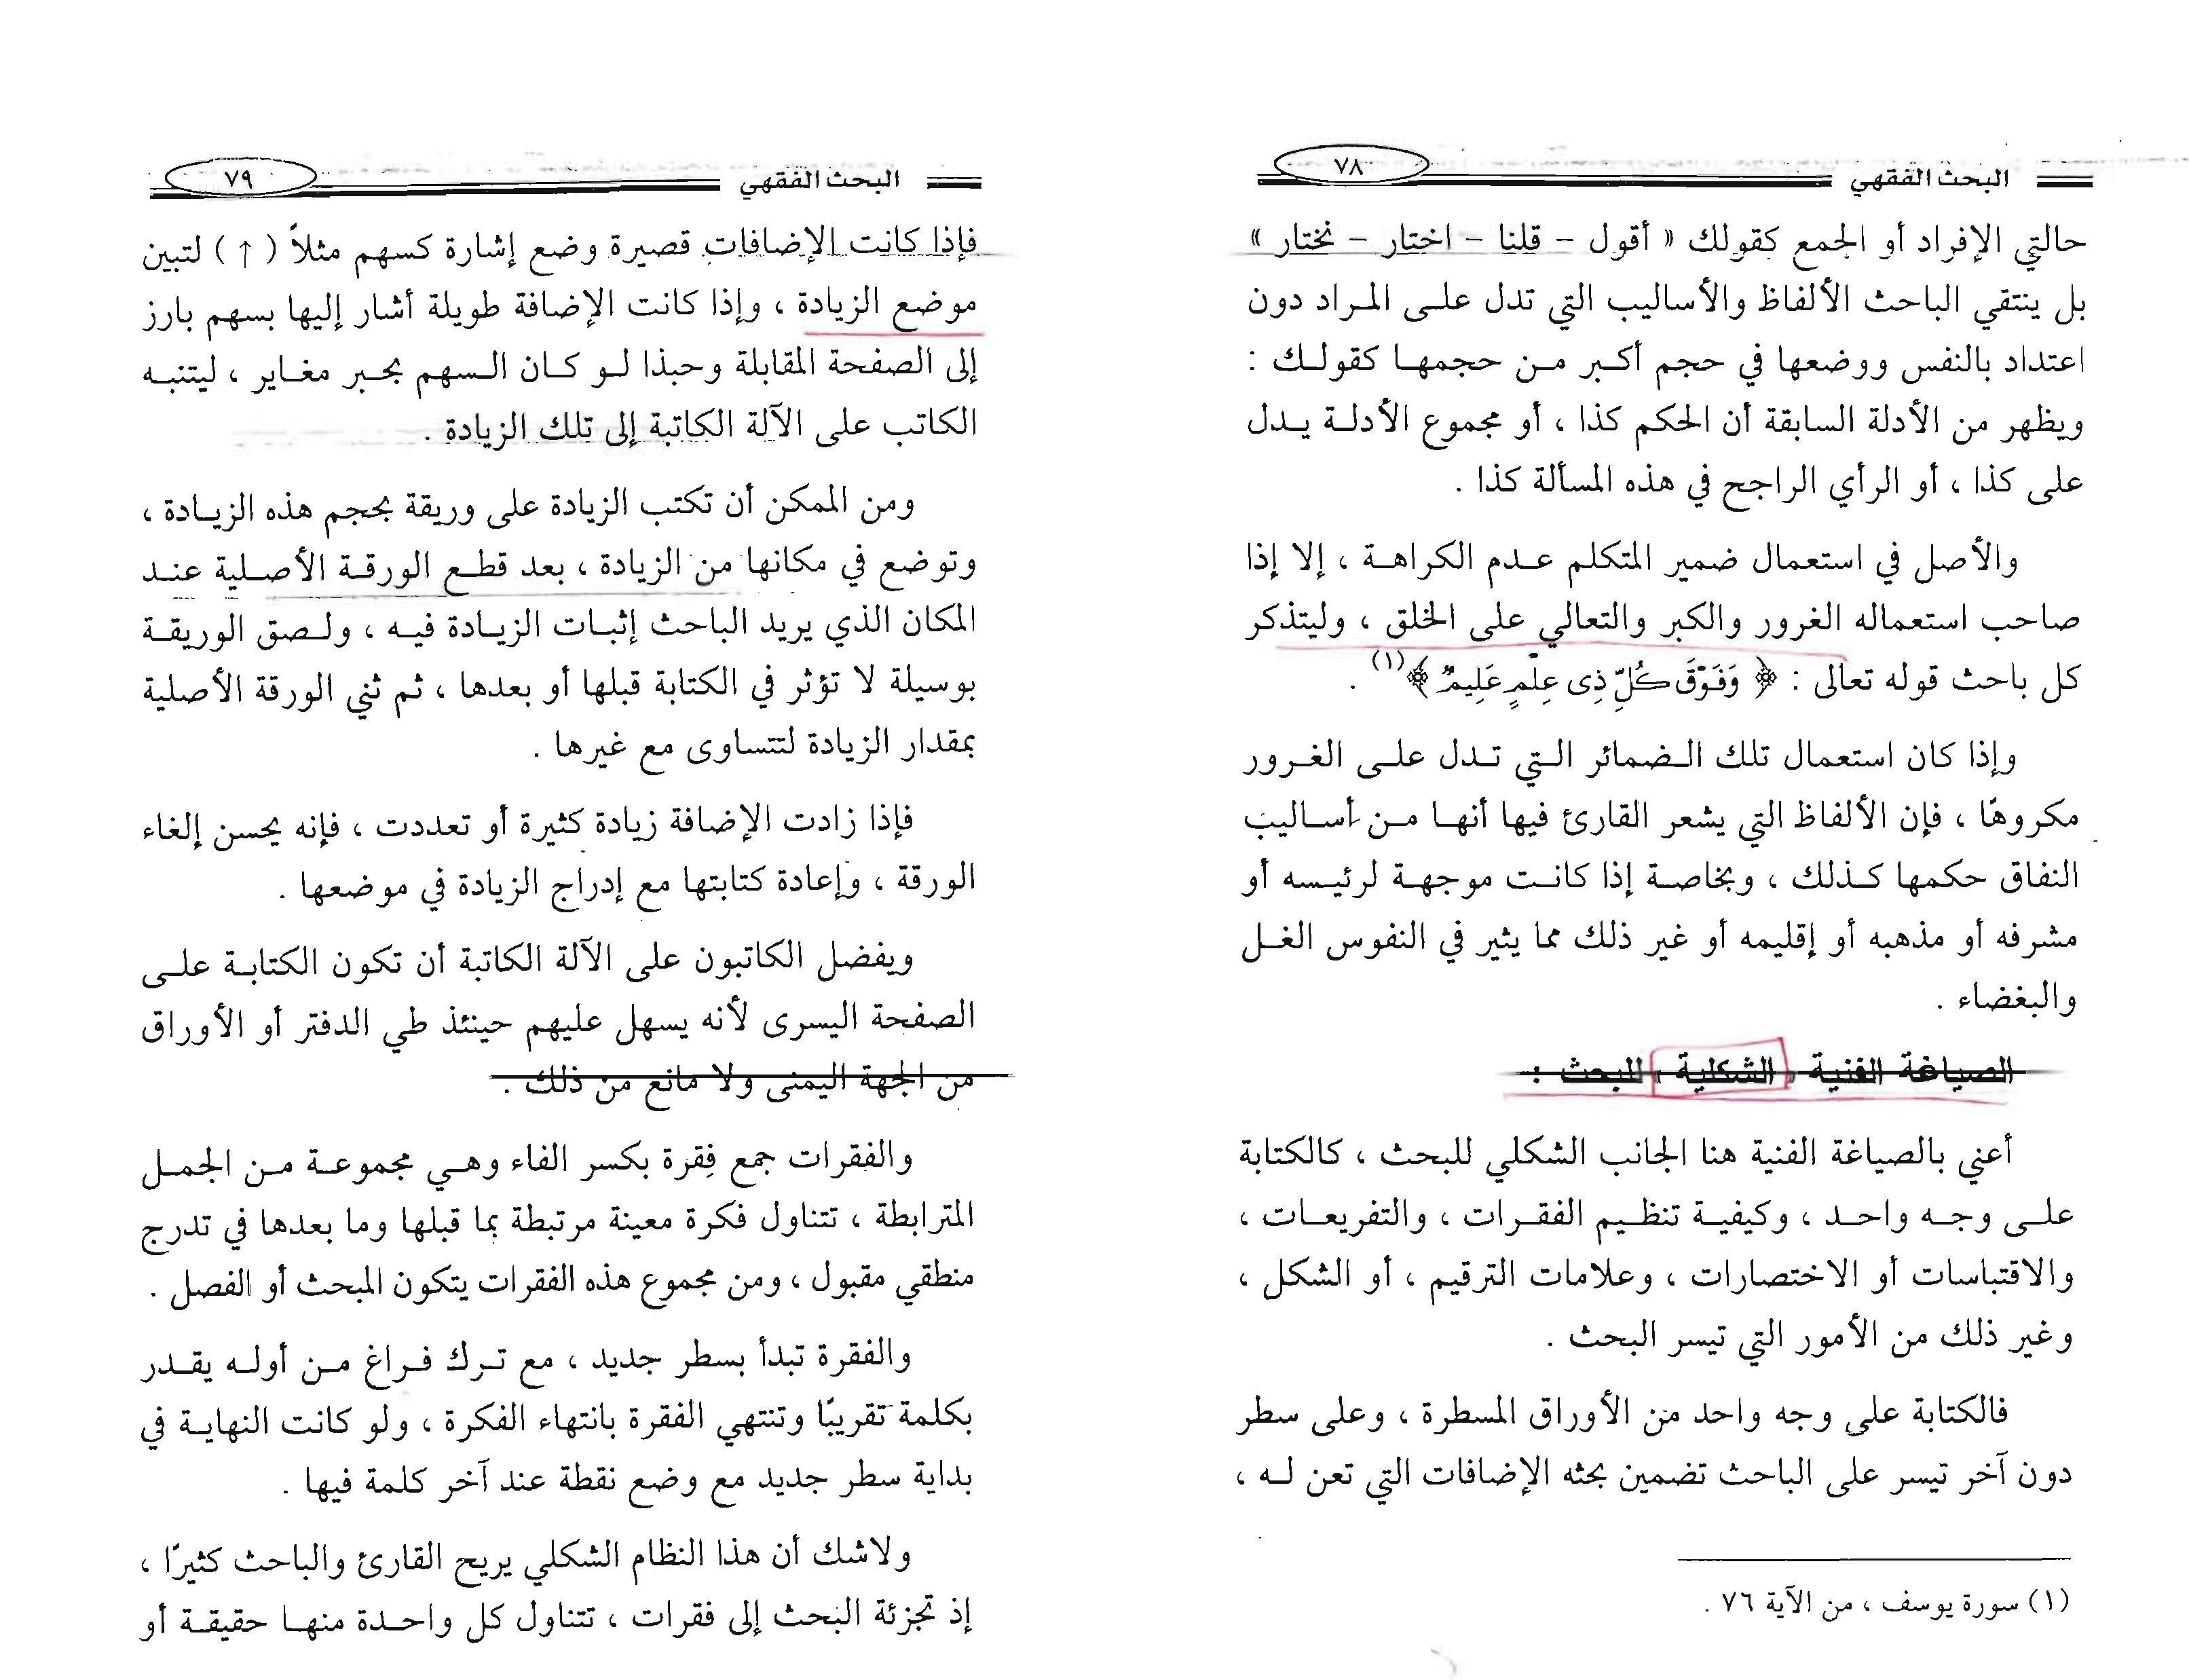 البحث الفقهي ٧٨
حالتي الإفراد أو الجمع كقولك « أقول – قلنا – اختار – نختار »
بل ينتقي الباحث الألفاظ والأساليب التي تدل على المراد دون
اعتداد بالنفس ووضعها في حجم أكبر من حجمها كقولك :
ويظهر من الأدلة السابقة أن الحكم كذا ، أو مجموع الأدلة يدل
على كذا ، أو الرأي الراجح في هذه المسألة كذا .
والأصل في استعمال ضمير المتكلم عدم الكراهة ، إلا إذا
صاحب استعماله الغرور والكبر والتعالي على الخلق ، وليتذكر
كل باحث قوله تعالى : ﴿ وَفَوْقَ كُلِّ ذِى عِلْمٍ عَلِيمٌ ﴾(١) .
وإذا كان استعمال تلك الضمائر التي تدل على الغرور
مكروهًا ، فإن الألفاظ التي يشعر القارئ فيها أنها من أساليب
النفاق حكمها كذلك ، وبخاصة إذا كانت موجهة لرئيسه أو
مشرفه أو مذهبه أو إقليمه أو غير ذلك مما يثير في النفوس الغل
والبغضاء .
الصياغة الفنية « الشكلية » للبحث :
أعني بالصياغة الفنية هنا الجانب الشكلي للبحث ، كالكتابة
على وجه واحد ، وكيفية تنظيم الفقرات ، والتفريعات ،
والاقتباسات أو الاختصارات ، وعلامات الترقيم ، أو الشكل ،
وغير ذلك من الأمور التي تيسر البحث .
فالكتابة على وجه واحد من الأوراق المسطرة ، وعلى سطر
دون آخر تيسر على الباحث تضمين بحثه الإضافات التي تعن له ،
(١) سورة يوسف ، من الآية ٧٦ .
البحث الفقهي ٧٩
فإذا كانت الإضافات قصيرة وضع إشارة كسهم مثلاً ( ↑ ) لتبين
موضع الزيادة ، وإذا كانت الإضافة طويلة أشار إليها بسهم بارز
إلى الصفحة المقابلة وحبذا لو كان السهم بحبر مغاير ، ليتنبه
الكاتب على الآلة الكاتبة إلى تلك الزيادة .
ومن الممكن أن تكتب الزيادة على وريقة بحجم هذه الزيادة ،
وتوضع في مكانها من الزيادة ، بعد قطع الورقة الأصلية عند
المكان الذي يريد الباحث إثبات الزيادة فيه ، ولصق الوريقة
بوسيلة لا تؤثر في الكتابة قبلها أو بعدها ، ثم ثني الورقة الأصلية
بمقدار الزيادة لتتساوى مع غيرها .
فإذا زادت الإضافة زيادة كثيرة أو تعددت ، فإنه يحسن إلغاء
الورقة ، وإعادة كتابتها مع إدراج الزيادة في موضعها .
ويفضل الكاتبون على الآلة الكاتبة أن تكون الكتابة على
الصفحة اليسرى لأنه يسهل عليهم حينئذ طي الدفتر أو الأوراق
من الجهة اليمنى ولا مانع من ذلك .
والفقرات جمع فِقرة بكسر الفاء وهي مجموعة من الجمل
المترابطة ، تتناول فكرة معينة مرتبطة بما قبلها وما بعدها في تدرج
منطقي مقبول ، ومن مجموع هذه الفقرات يتكون المبحث أو الفصل .
والفقرة تبدأ بسطر جديد ، مع ترك فراغ من أوله يقدر
بكلمة تقريبًا وتنتهي الفقرة بانتهاء الفكرة ، ولو كانت النهاية في
بداية سطر جديد مع وضع نقطة عند آخر كلمة فيها .
ولاشك أن هذا النظام الشكلي يريح القارئ والباحث كثيرًا ،
إذ تجزئة البحث إلى فقرات ، تتناول كل واحدة منها حقيقة أو